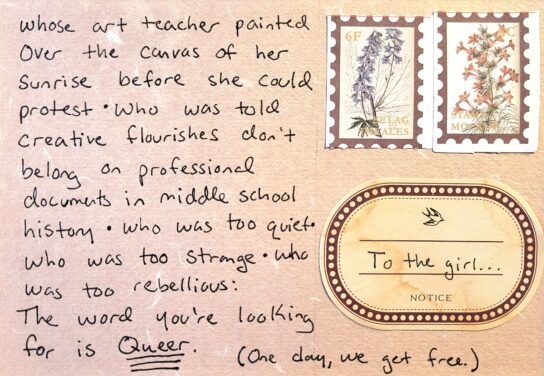 whose art teacher painted
Over the canvas of her
Sunrise before she could
protest • Who was told
creative flourishes don't
belong on professional
documents in middle school
history • who was too quiet•
who was too strange • who
was too rebellious:
The word you're looking
for is Queer.
(One day, we get free.)
6F
To the girl...
NOTICE